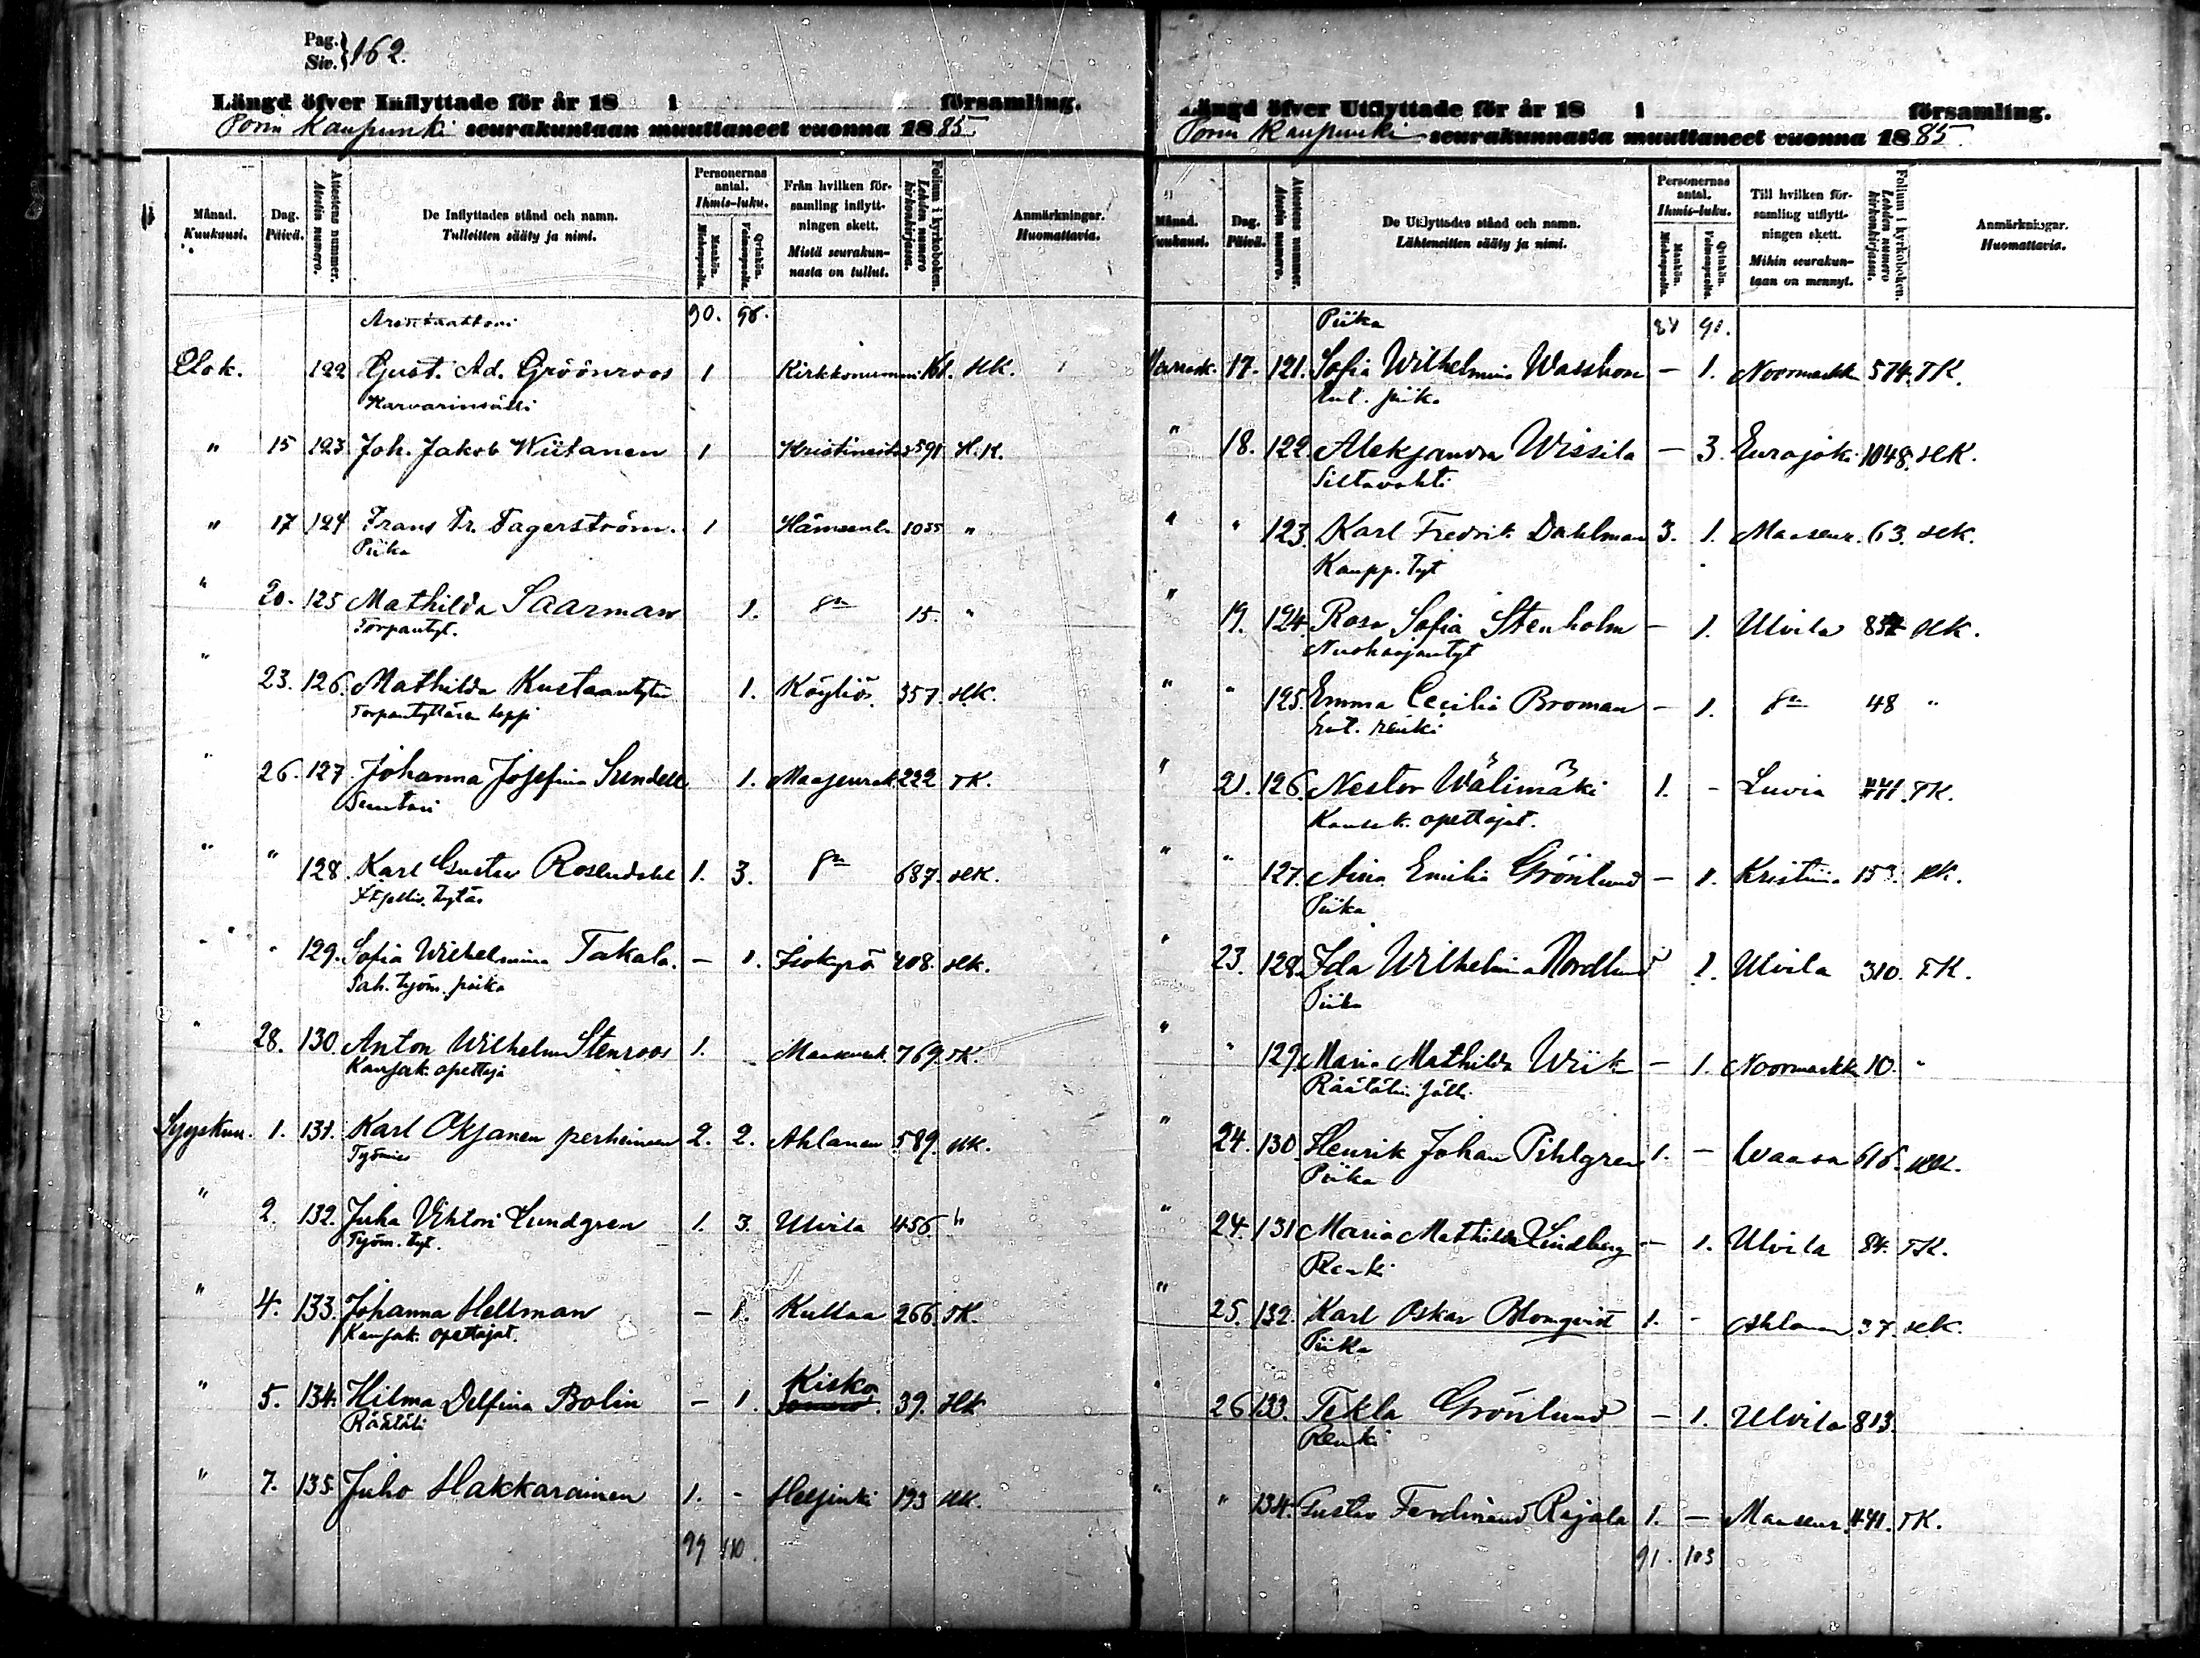 Pag. Siv. } 162.
Längd öfver Inflyttade för år 18 i församling.
Porin Kaupunki seurakuntaan muuttaneet vuonna 1885
Månad. Kuukausi.
Dag. Päivä.
Attestens nummer. Atestin numero.
De Inflyttades stånd och namn. Tulleitten sääty ja nimi.
Personernas antal. Ihmis-luku.
Mankön. Miehenpuolta.
Qvinkön. Vaimonpuolta.
Från hvilken församling inflyttningen skett. Mistä seurakunnasta on tullut.
Folium i kyrkoboken. Lehden numero kirkonkirjassa.
Anmärkningar. Huomattavia.
90. 96.
Elok. 122 Gust. Ad. Gröönroos 1 Kirkkonummi 161. HK.
Karvarinsälli
" 15 123 Joh. Jakob Wiitanen 1 591 H.K.
" 17 124 Frans Fr. Fagerström. 1 Hämeenl. 1035 "
Piika
" 20. 125 Mathilda Saarman 1. 15. "
Torpantyt.
" 23. 126. Mathilda Kustaantytär 1. Köyliö 357. HK.
" 26. 127 Johanna Josefina Sundell 1. Maaseurak. 232 TK.
Suutari
" " 128. Karl Gustav Rosendahl 1. 3. 687. HK.
" " 129. Sofia Wilhelmina Takala. — 1. Isokyrö 408. HK.
" 28. 130. Anton Wilhelm Stenroos 1. Maaseurak. 769. TK.
Kansak. opettaja
Syyskuu. 1. 131. Karl Oksanen perheineen 2. 2. Ahlainen 589. HK.
Työmies
" 2. 132. Juha Vihtori Lundgren 1. 3. Ulvila 456. "
Työm. tyt.
" 4. 133. Johanna Hellman — 1. Kullaa 266. TK.
Kansak. opettajat.
" 5. 134. Hilma Delfina Bolin — 1. Kisko 39. HK
Räätäli
" 7. 135. Juho Hakkarainen 1. - Helsinki 193 HK.
99 110.
Längd öfver Utflyttade för år 18 i församling.
Porin Kaupunki seurakunnasta muuttaneet vuonna 1885.
Månad. Kuukausi.
Dag. Päivä.
Attestens nummer. Atestin numero.
De Utflyttades stånd och namn. Lähteneitten sääty ja nimi.
Personernas antal. Ihmis-luku.
Mankön. Miehenpuolta.
Qvinkön. Vaimonpuolta.
Till hvilken församling utflyttningen skett. Mihin seurakuntaan on mennyt.
Folium i kyrkoboken. Lehden numero kirkonkirjassa.
Anmärkningar. Huomattavia.
Piika 91.
Marrask. 17. 121. Sofia Wilhelmina — 1. Noormarkku 574. TK.
Ent. piika
" 18. 122. Aleksandra Wissila — 3. Eurajoki 1048. HK.
Siltavahti
" " 123. Karl Fredrik Dahlman 3. 1. Maaseur. 63. HK.
Kaupp. tyt
" 19. 124. Rosa Sofia Stenholm — 1. Ulvila HK.
Nuohoojantyt
" " 125. Emma Cecilia Broman — 1. 48 "
Ent. renki
" 21. 126. Nestor Wälimäki 1. - Luvia 441. TK.
Kansak. opettajat.
" " 127. Aina Emilia Grönlund — 1. Kristiina 153. HK.
Piika
" 23. 128. Ida Wilhelmina Nordlund 1. Ulvila 310. TK.
Piika
" " 129. Maria Mathilda Wiik — 1. Noormarkku 10. "
Räätälin sälli
" 24. 130. Henrik Johan Pihlgren 1. — Waasa 616. HK.
Piika
" 24. 131 Maria Mathilda Lindberg — 1. Ulvila 84. TK.
Renki
" 25. 132. Karl Oskar Blomqvist 1. - Ahlainen 37. HK.
Piika
" 26 133. Tekla Grönlund — 1. Ulvila 813.
Renki
" " 134. Gustav Ferdinand Rajala 1. — Maaseur. 441. TK.
91. 103